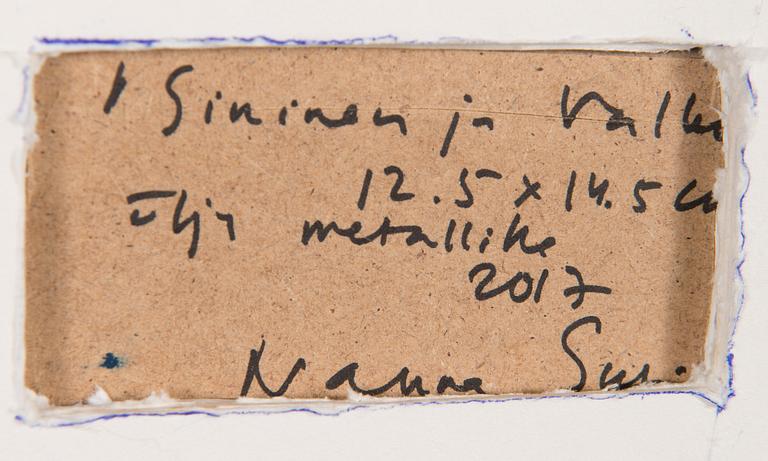 ' Sininen ja Valko
12.5 x 14.5 cm
öljy metallille
2017
Nanna Susi